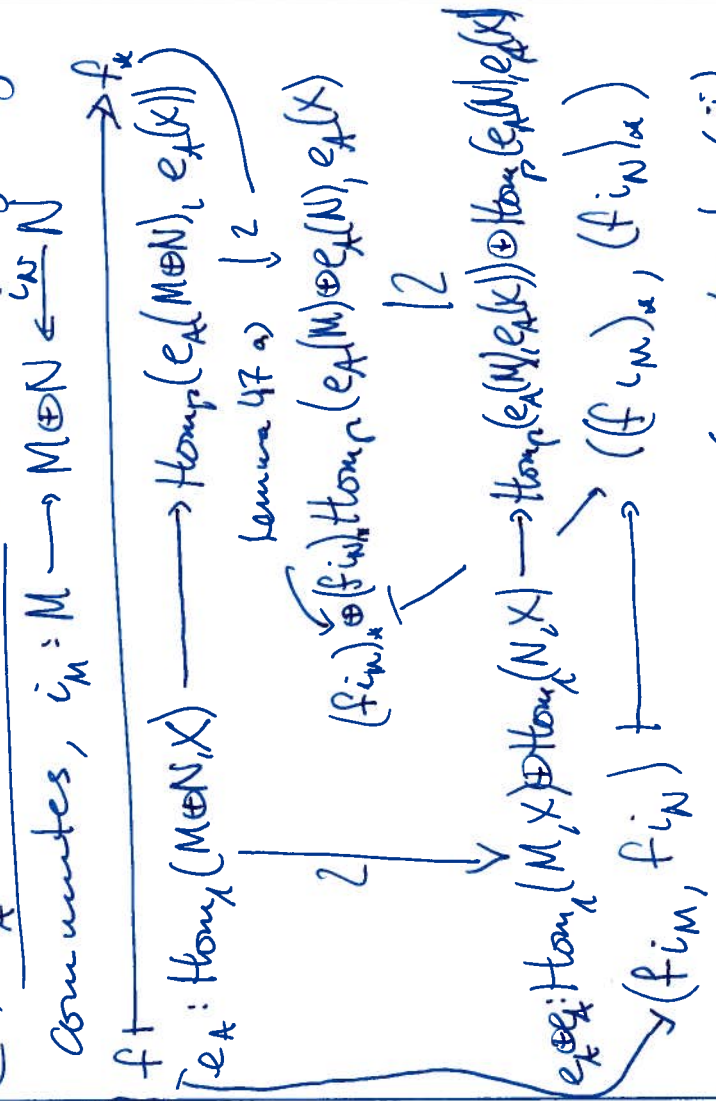 commutes, i_M : M → M⊕N ←^{i_N} N
f ↦ f_*
e_A : Hom_Λ(M⊕N, X) → Hom_Γ(e_A(M⊕N), e_A(X))
Lemma 47 a) ≀↓
(f i_M)_* ⊕ (f i_N)_* Hom_Γ(e_A(M)⊕e_A(N), e_A(X)
≀ ≀
e_A⊕e_A : Hom_Λ(M, X)⊕Hom_Λ(N, X) → Hom_Γ(e_A(M), e_A(X))⊕Hom_Γ(e_A(N), e_A(X)
(f i_M, f i_N) ↦ ((f i_M)_*, (f i_N)_*)